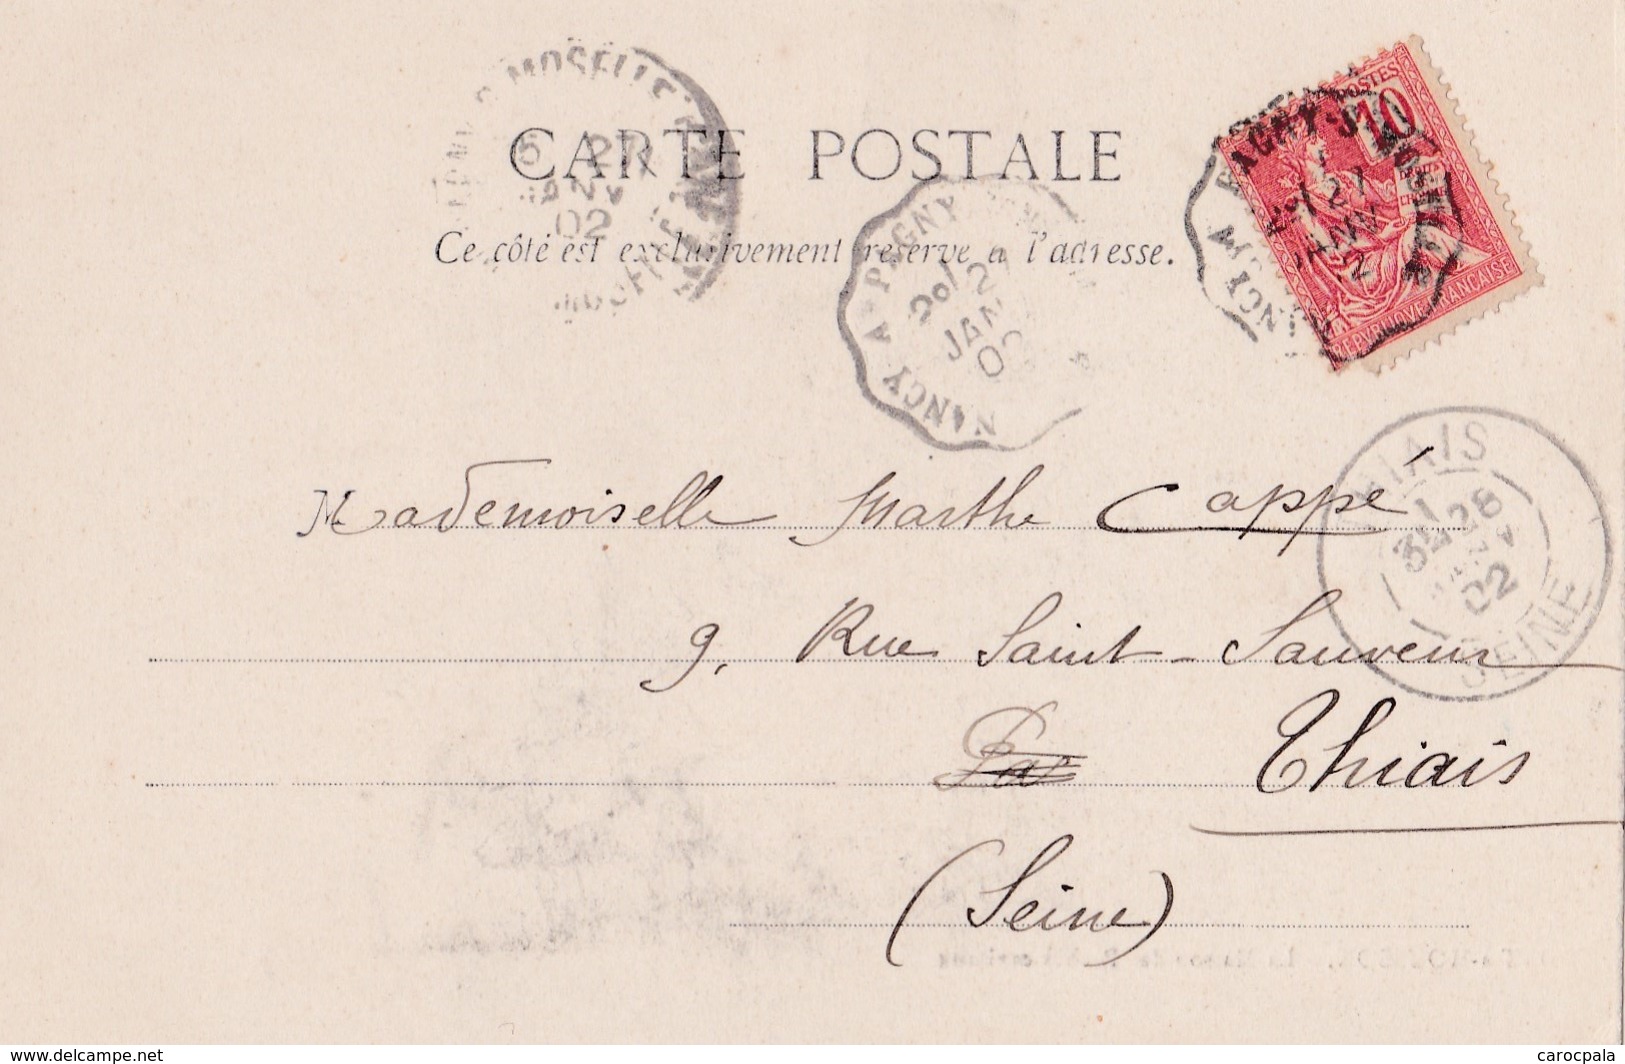 MOSELLE
27
02
CARTE POSTALE
Ce côté est exclusivement réservé à l'adresse.
NANCY A PAGNY
2º/ 27
JANV
02
POSTES
10
PAGNY
NANCY
2º/ 27
JANV
REPUBLIQUE FRANÇAISE
THIAIS
3E 28
JANV
02
SEINE
Mademoiselle Marthe Cappé
9, Rue Saint-Sauveur
Par Thiais
(Seine)
www.delcampe.net
carocpala